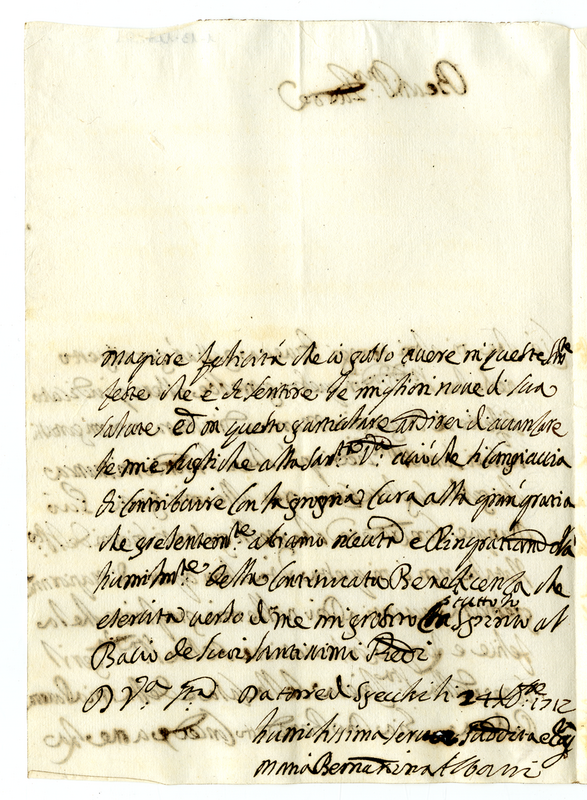 magiore felicitá che io posso avere in queste Ste
feste che è di sentire le migliori nove di sua
salute ed in questo particulare ardirei di avansare
le mie supliche alla Santtà Va acciò che si Compiaccia
di contribuire con la propria Cura alla gran gratia
che presentemte abiamo riceuta e Ringratiand
humilmte della Continuata Beneficensa che
esercita verso di me mi prostro Con tutto lo Spirito al
Bacio de Suoi Santissimi Piedi
D Va Stà Da Torre di Specchi li 24 Xbre 1712
humilissima serva suddita e
Maria Bernardina Albani